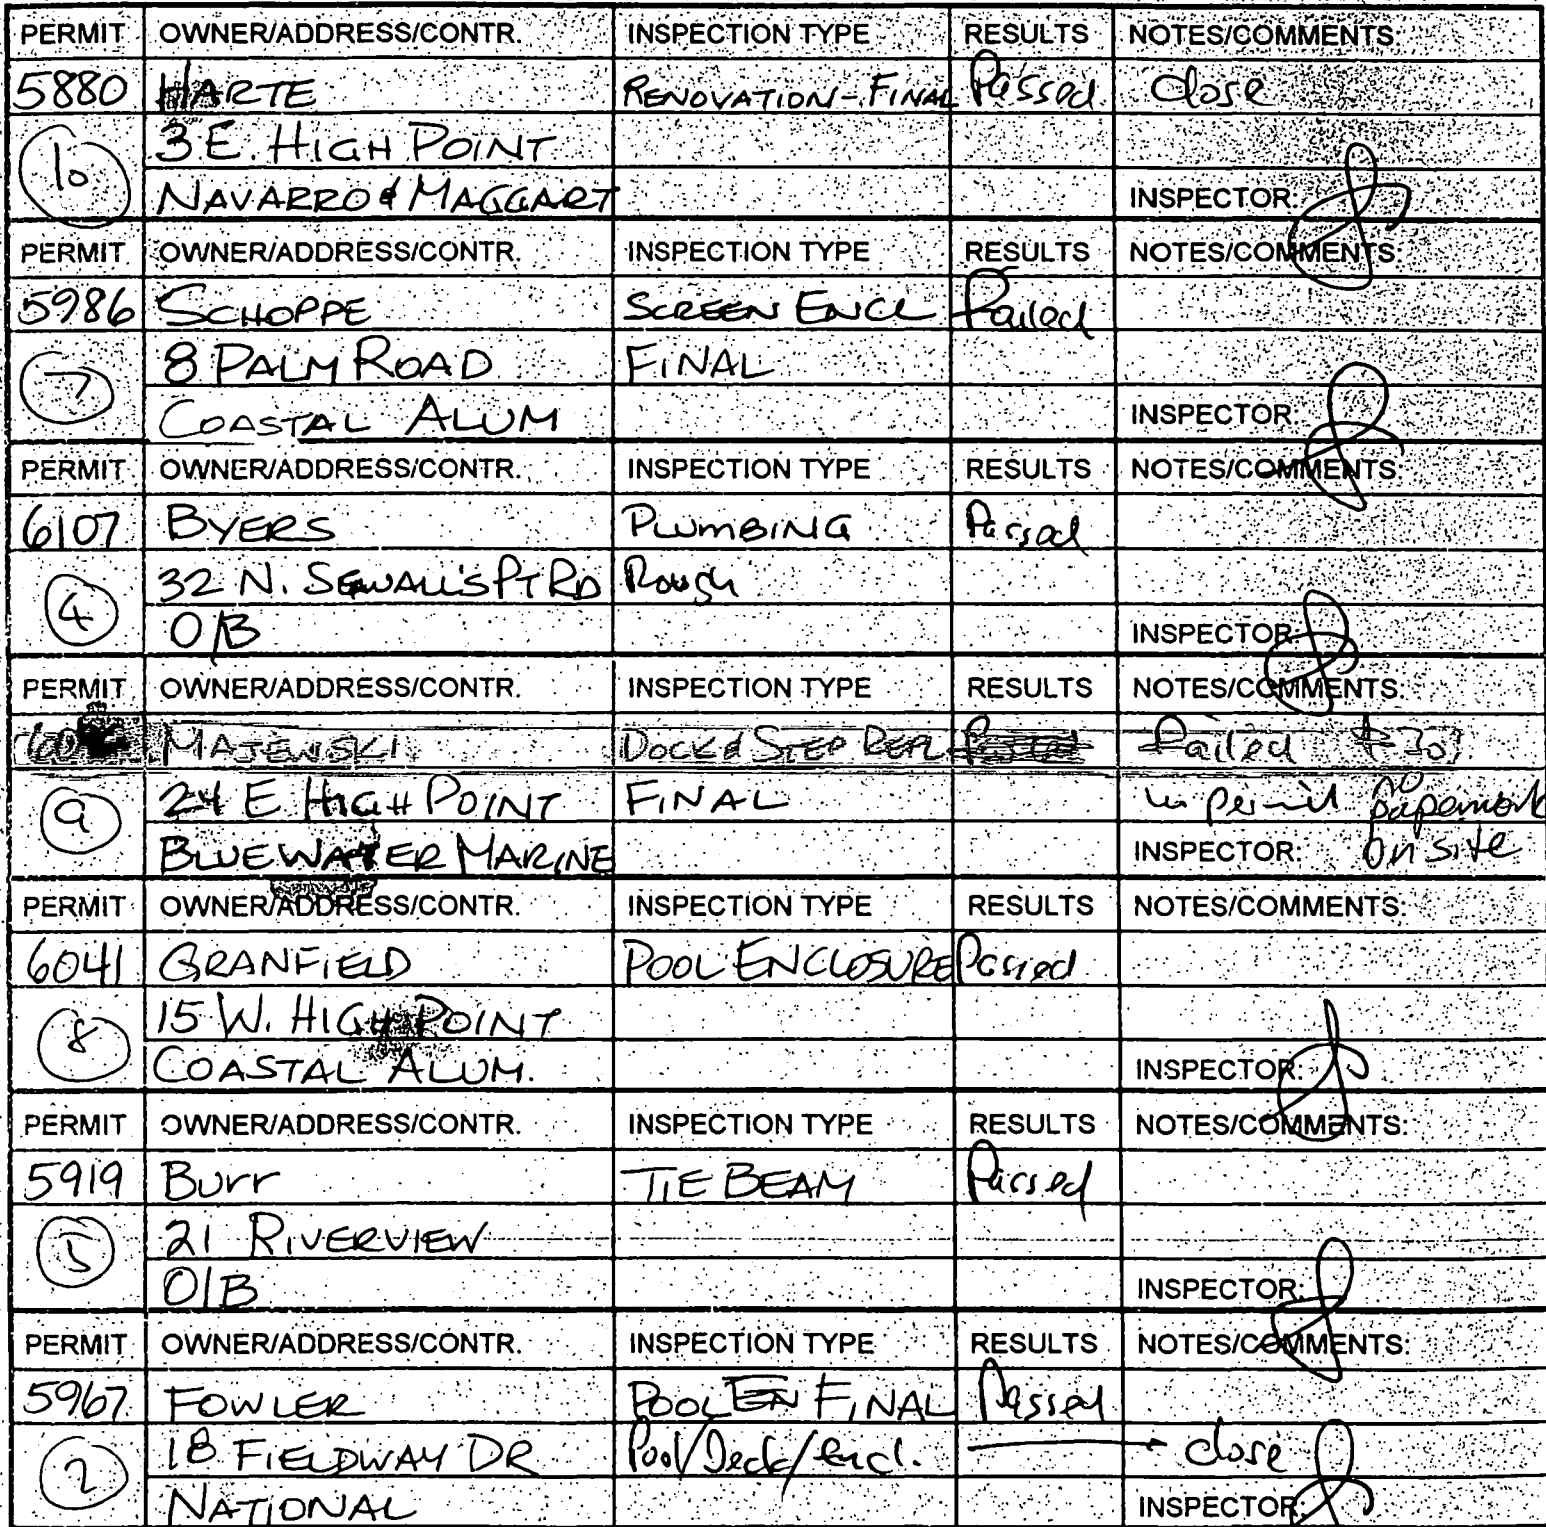 PERMIT OWNER/ADDRESS/CONTR. INSPECTION TYPE RESULTS NOTES/COMMENTS:
5880 HARTE RENOVATION-FINAL Passed Close
10 3 E. HIGH POINT
NAVARRO & MAGGART INSPECTOR:
PERMIT OWNER/ADDRESS/CONTR. INSPECTION TYPE RESULTS NOTES/COMMENTS:
5986 SCHOPPE SCREEN ENCL Failed
7 8 PALM ROAD FINAL
COASTAL ALUM INSPECTOR:
PERMIT OWNER/ADDRESS/CONTR. INSPECTION TYPE RESULTS NOTES/COMMENTS:
6107 BYERS PLUMBING Passed
4 32 N. SEWALL'S PT RD Rough
O/B INSPECTOR:
PERMIT OWNER/ADDRESS/CONTR. INSPECTION TYPE RESULTS NOTES/COMMENTS:
MAJEWSKI DOCK & STEP REPL Failed
9 24 E HIGH POINT FINAL no permit no paperwork
BLUEWATER MARINE INSPECTOR: on site
PERMIT OWNER/ADDRESS/CONTR. INSPECTION TYPE RESULTS NOTES/COMMENTS:
6041 GRANFIELD POOL ENCLOSURE Passed
8 15 W. HIGH POINT
COASTAL ALUM. INSPECTOR:
PERMIT OWNER/ADDRESS/CONTR. INSPECTION TYPE RESULTS NOTES/COMMENTS:
5919 Burr TIE BEAM Passed
5 21 RIVERVIEW
O/B INSPECTOR:
PERMIT OWNER/ADDRESS/CONTR. INSPECTION TYPE RESULTS NOTES/COMMENTS:
5967 FOWLER POOL EN FINAL Passed
2 18 FIELDWAY DR Pool/Deck/encl. close
NATIONAL INSPECTOR: